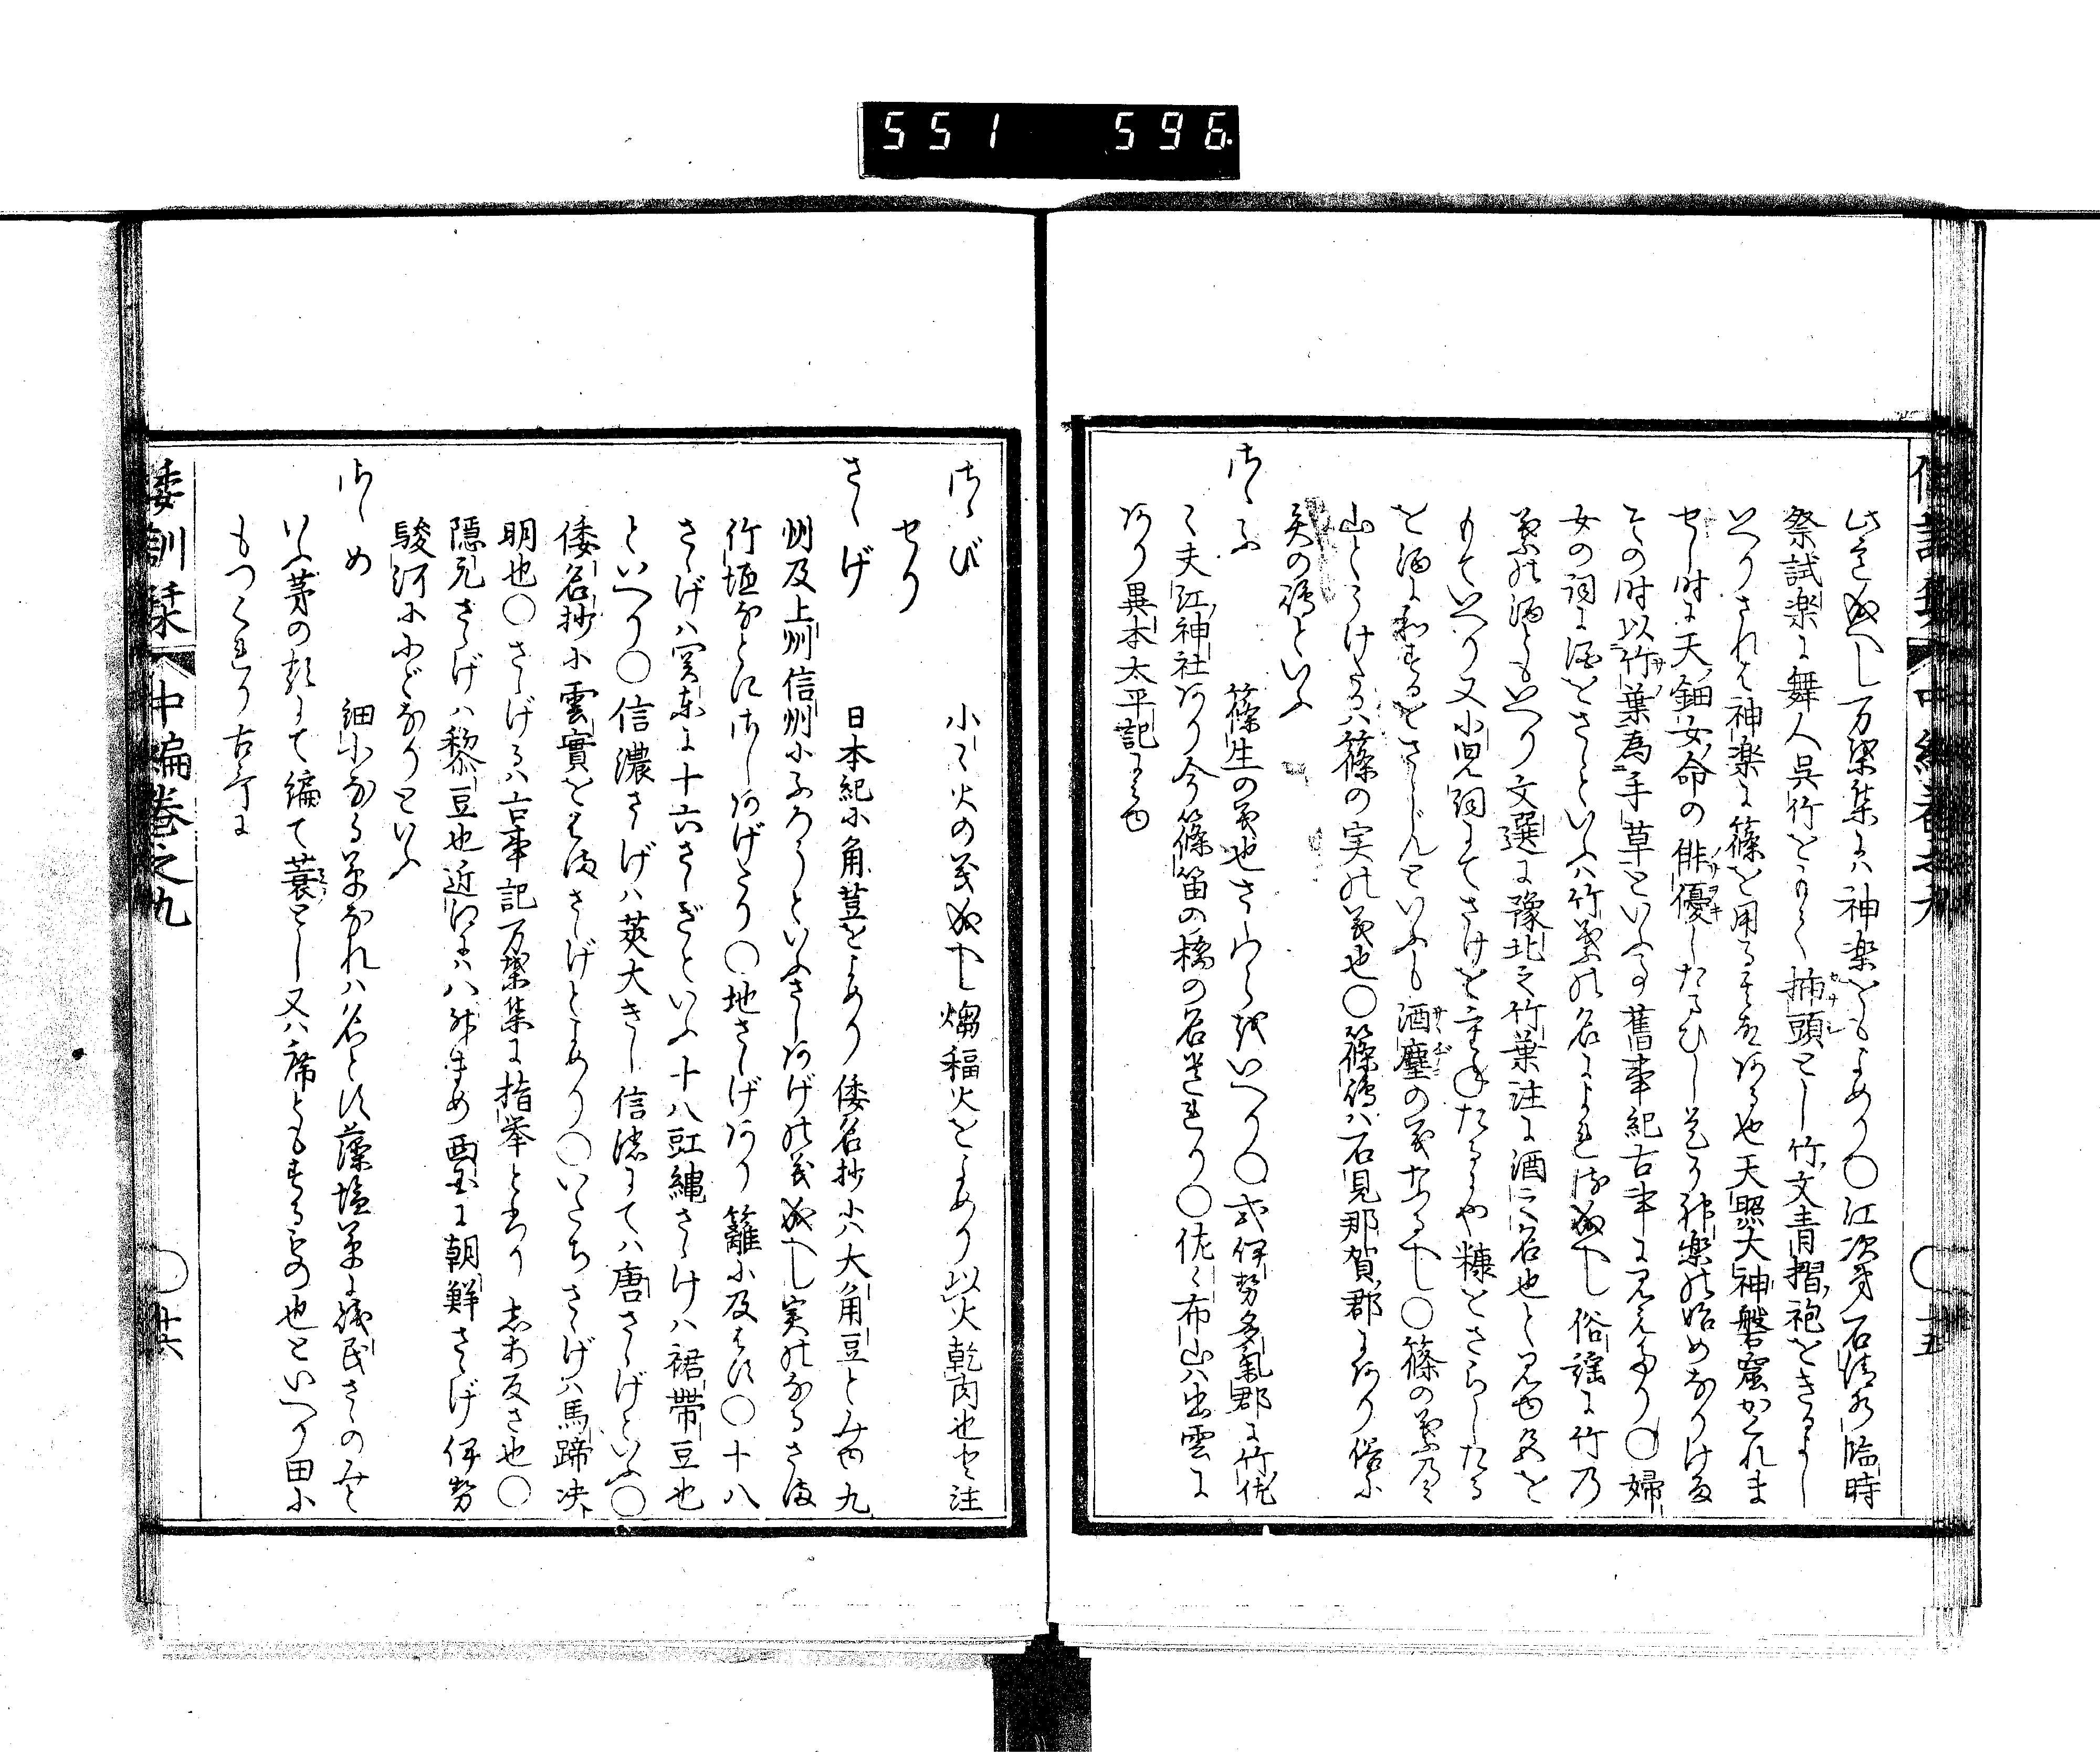 551 596
此意成へし万葉集には神楽ともよめり○江次第石清水臨時
祭試楽に舞人呉竹をもて挿頭とし竹文青摺袍をきるよし
いへりされは神楽に篠を用る事故ある也天照大神磐窟かくれま
せし時に天鈿女命の俳優したまひし是り神楽の始めなりける
その時以竹葉為手草といふ事舊事紀古事に見えたり○婦
女の詞に酒をさゝといふハ竹葉の名によれる成へし俗謡に竹乃
葉の酒ともいへり文選に豫北之竹葉注に酒之名也と見ゆ是を
もていへり又小児詞にてさけを
を酒に和するをさゝじんといふも酒塵の義なるへし○篠の葉乃ミ
山とつゝけたるハ篠の実の義也○篠嶋ハ石見那賀郡にあり俗に
矣の嶋といふ
さゝふ 篠生の義也さゝふる
ミ夫江神社あり今篠笛の橋の名遺れり○佐々布山ハ出雲に
あり異本太平記に見ゆ
倭訓栞 中編巻之九 ○ 廿五
さゝび 小々火の義成へし 煏 稫火をよめり以火乾肉也と注
せり
さゝげ 日本紀に角荳をよめり倭名抄に大角豆とみゆ九
州及上州信州にふろうといふさしあげの義成へし実のなるさま
竹垣なとにさしあげたり○地さゝげあり籬に及はす○十八
さゝげハ関東に十六さゝぎといふ十八豇縄さゝけハ裙帯豆也
といへり○信濃さゝげハ莢大きし信濃にてハ唐さゝげといふ○
倭名抄に雲實をはまさゝげとよめり○いたちさゝげハ馬蹄决
明也○さゝげるハ古事記万葉集に指挙とあり 志あ反さ也○
隠元さゝげハ黎豆也近江にハ八升まめ西国に朝鮮さゝげ伊勢
駿河にふどなりといふ
さゝめ 細小なる草なれハ名とす藻塩草に賤民さゝのみと
いふ茅の類にて編て蓑とし又ハ席ともするもの也といへり田に
もつくれり古今に
倭訓栞 中編巻之九 ○ 廿六